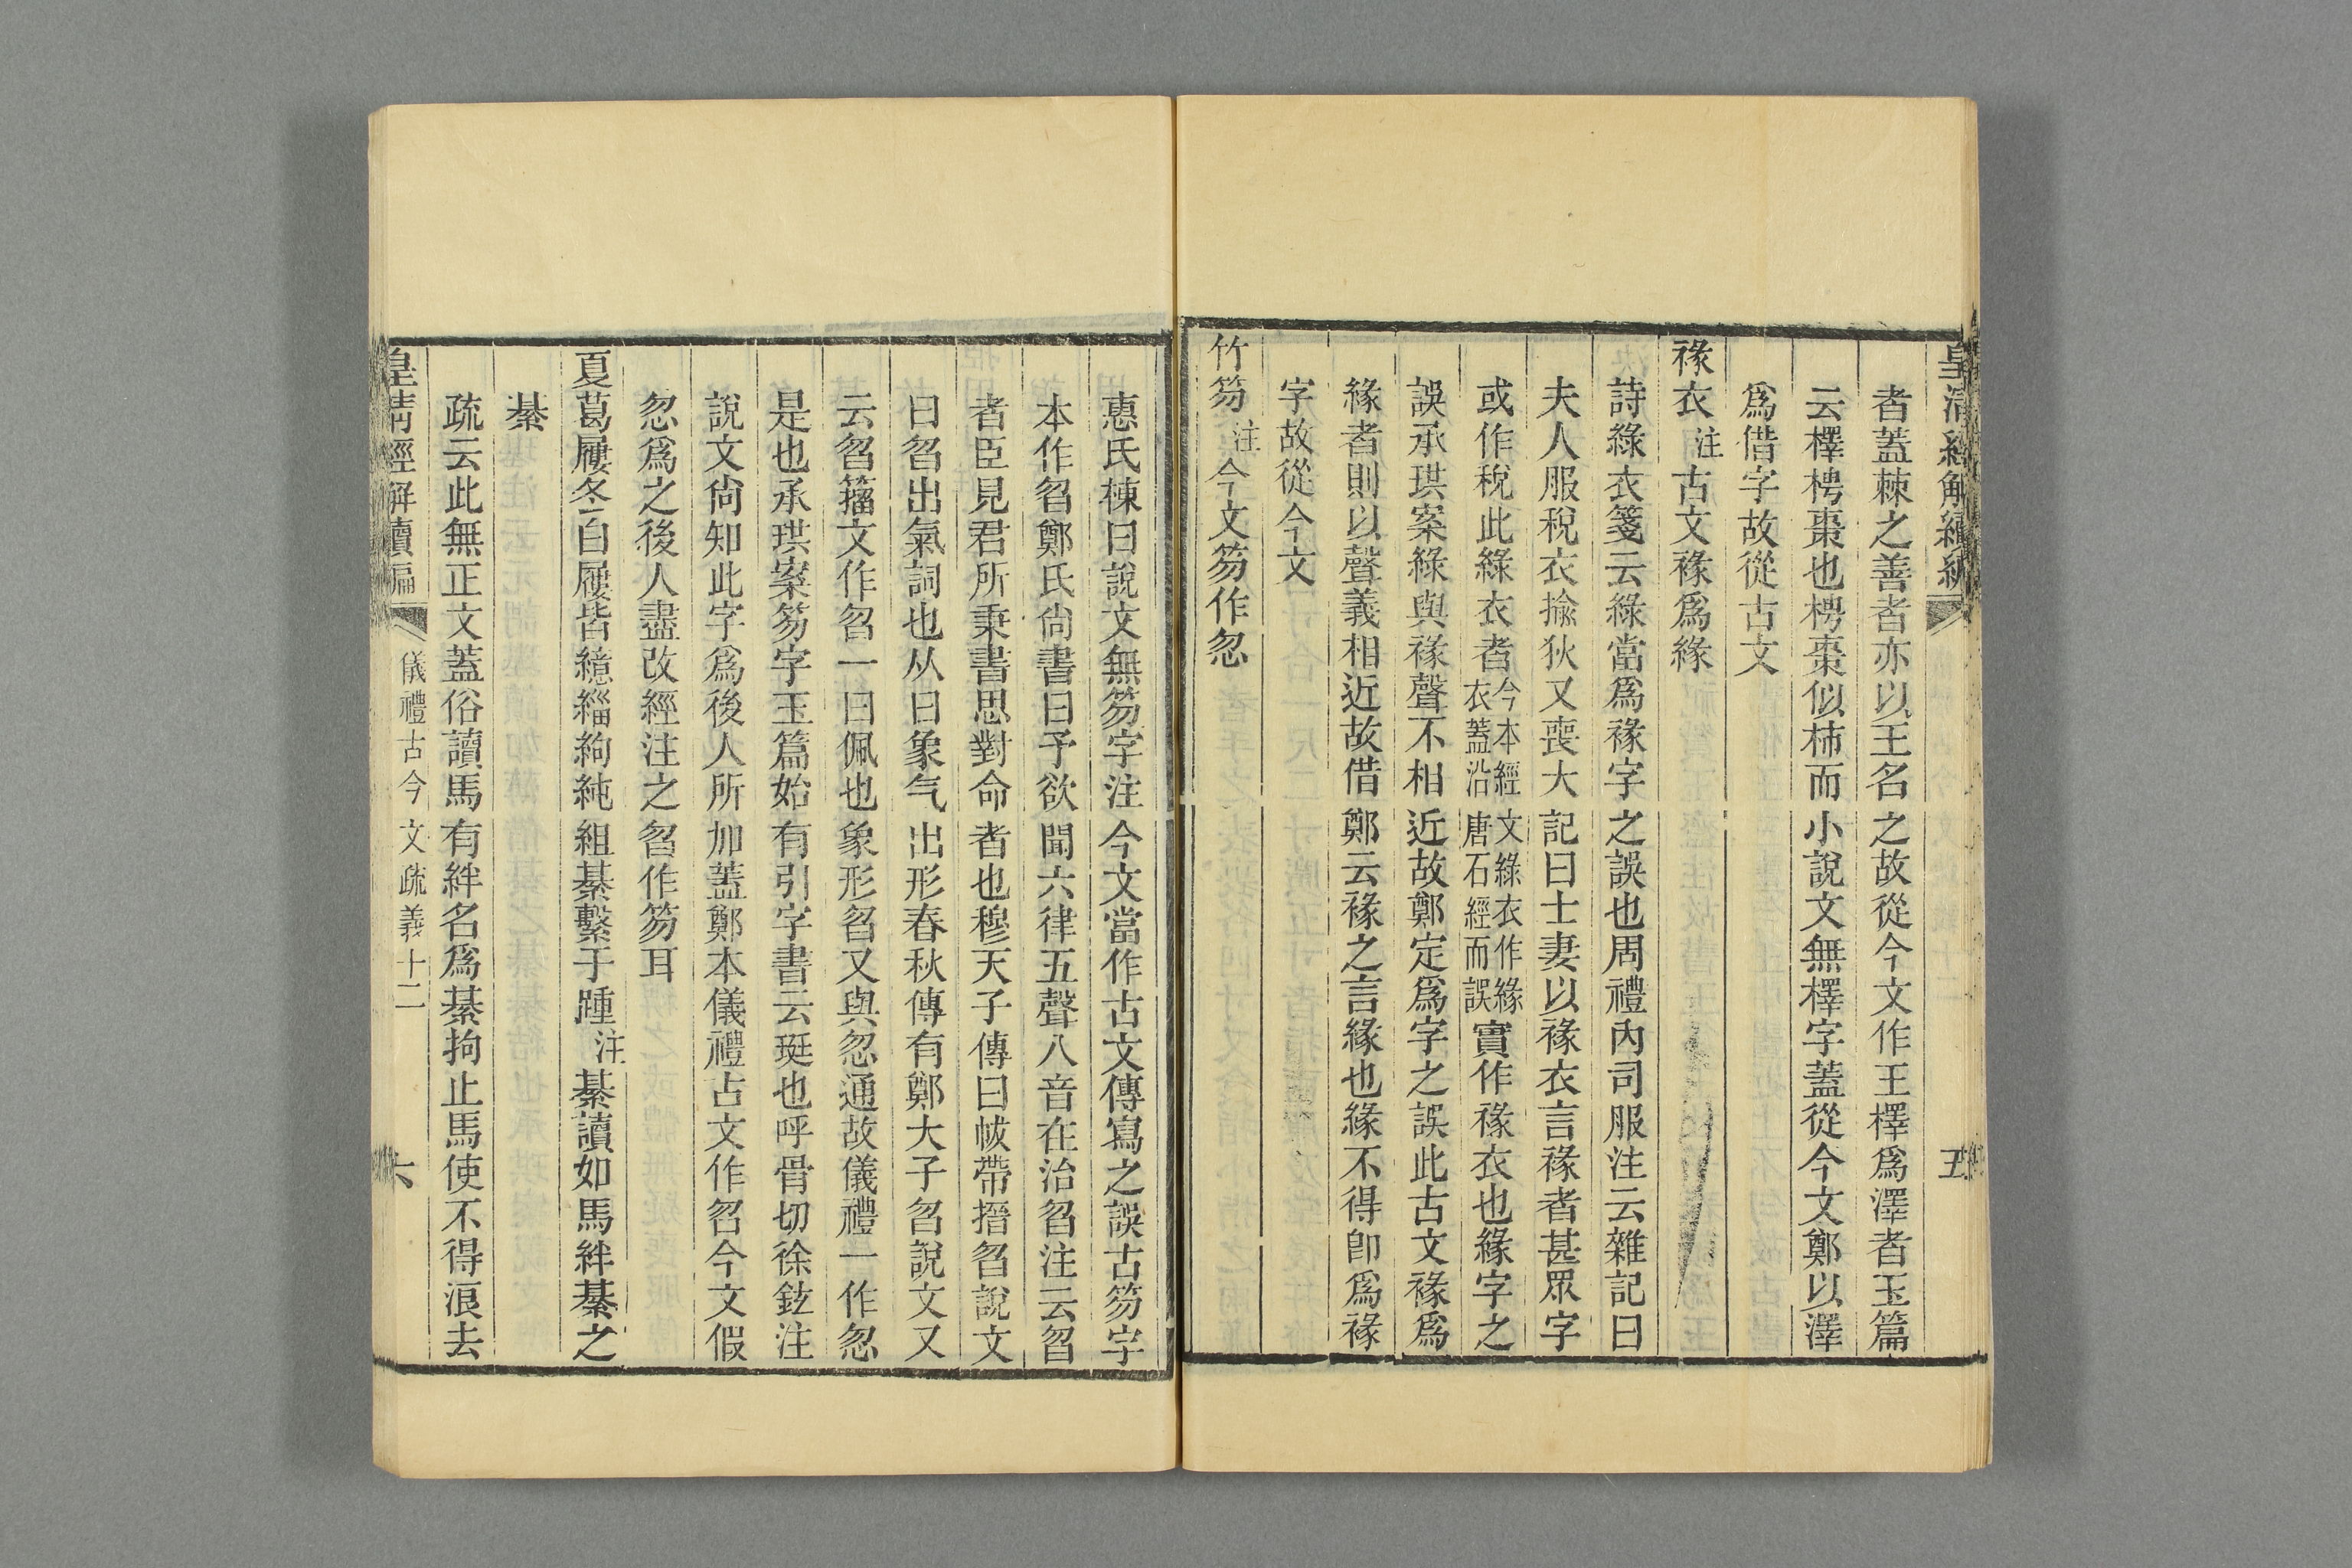 皇清經解續編
五
者蓋棘之善者亦以王名之故從今文作王檡爲澤者玉篇
云檡梬棗也梬棗似柿而小說文無檡字蓋從今文鄭以澤
爲借字故從古文
褖衣注古文褖爲緣
詩綠衣箋云綠當爲褖字之誤也周禮內司服注云雜記曰
夫人服稅衣揄狄又喪大記曰士妻以褖衣言褖者甚眾字
或作稅此綠衣者今本經文綠衣作緣衣蓋沿唐石經而誤實作褖衣也緣字之
誤承珙案綠與褖聲不相近故鄭定爲字之誤此古文褖爲
緣者則以聲義相近故借鄭云褖之言緣也緣不得卽爲褖
字故從今文
竹笏注今文笏作忽
惠氏棟曰說文無笏字注今文當作古文傳寫之誤古笏字
本作曶鄭氏尙書曰予欲聞六律五聲八音在治曶注云曶
者臣見君所秉書思對命者也穆天子傳曰帗帶搢曶說文
曰曶出氣詞也从曰象气出形春秋傳有鄭大子曶說文又
云曶籀文作曶一曰佩也象形曶又與忽通故儀禮一作忽
是也承珙案笏字玉篇始有引字書云珽也呼骨切徐鉉注
說文尙知此字爲後人所加蓋鄭本儀禮古文作曶今文假
忽爲之後人盡改經注之曶作笏耳
夏葛屨冬白屨皆繶緇絇純組綦繫于踵注綦讀如馬絆綦之
綦
疏云此無正文蓋俗讀馬有絆名爲綦拘止馬使不得浪去
皇清經解續編
儀禮古今文疏義十二
六